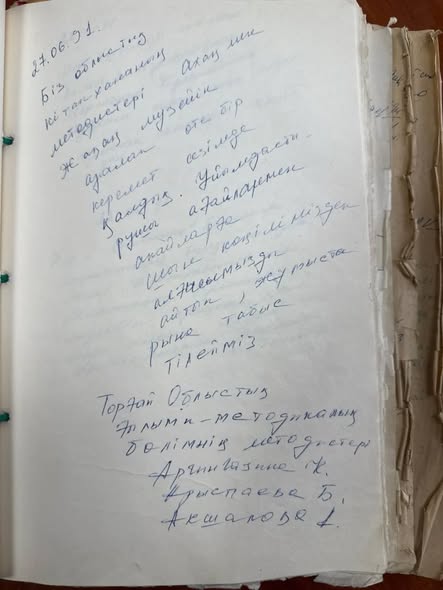 27.06.91.
Біз облыстық
кітапхананың
методистері Ахаң мен
Жақаң музейін
аралап өте бір
керемет сезімде
қалдық. Ұйымдасты-
рушы ағайланмен
апайларға
шын көңілімізден
алғысымызды
айтып, жұмыста
рына табыс
тілейміз.
Торғай Облыстық
Ғылыми-методикалық
бөлімнің методистері
Аргингазина К.
Арыспаева Б.
Акшалова А.